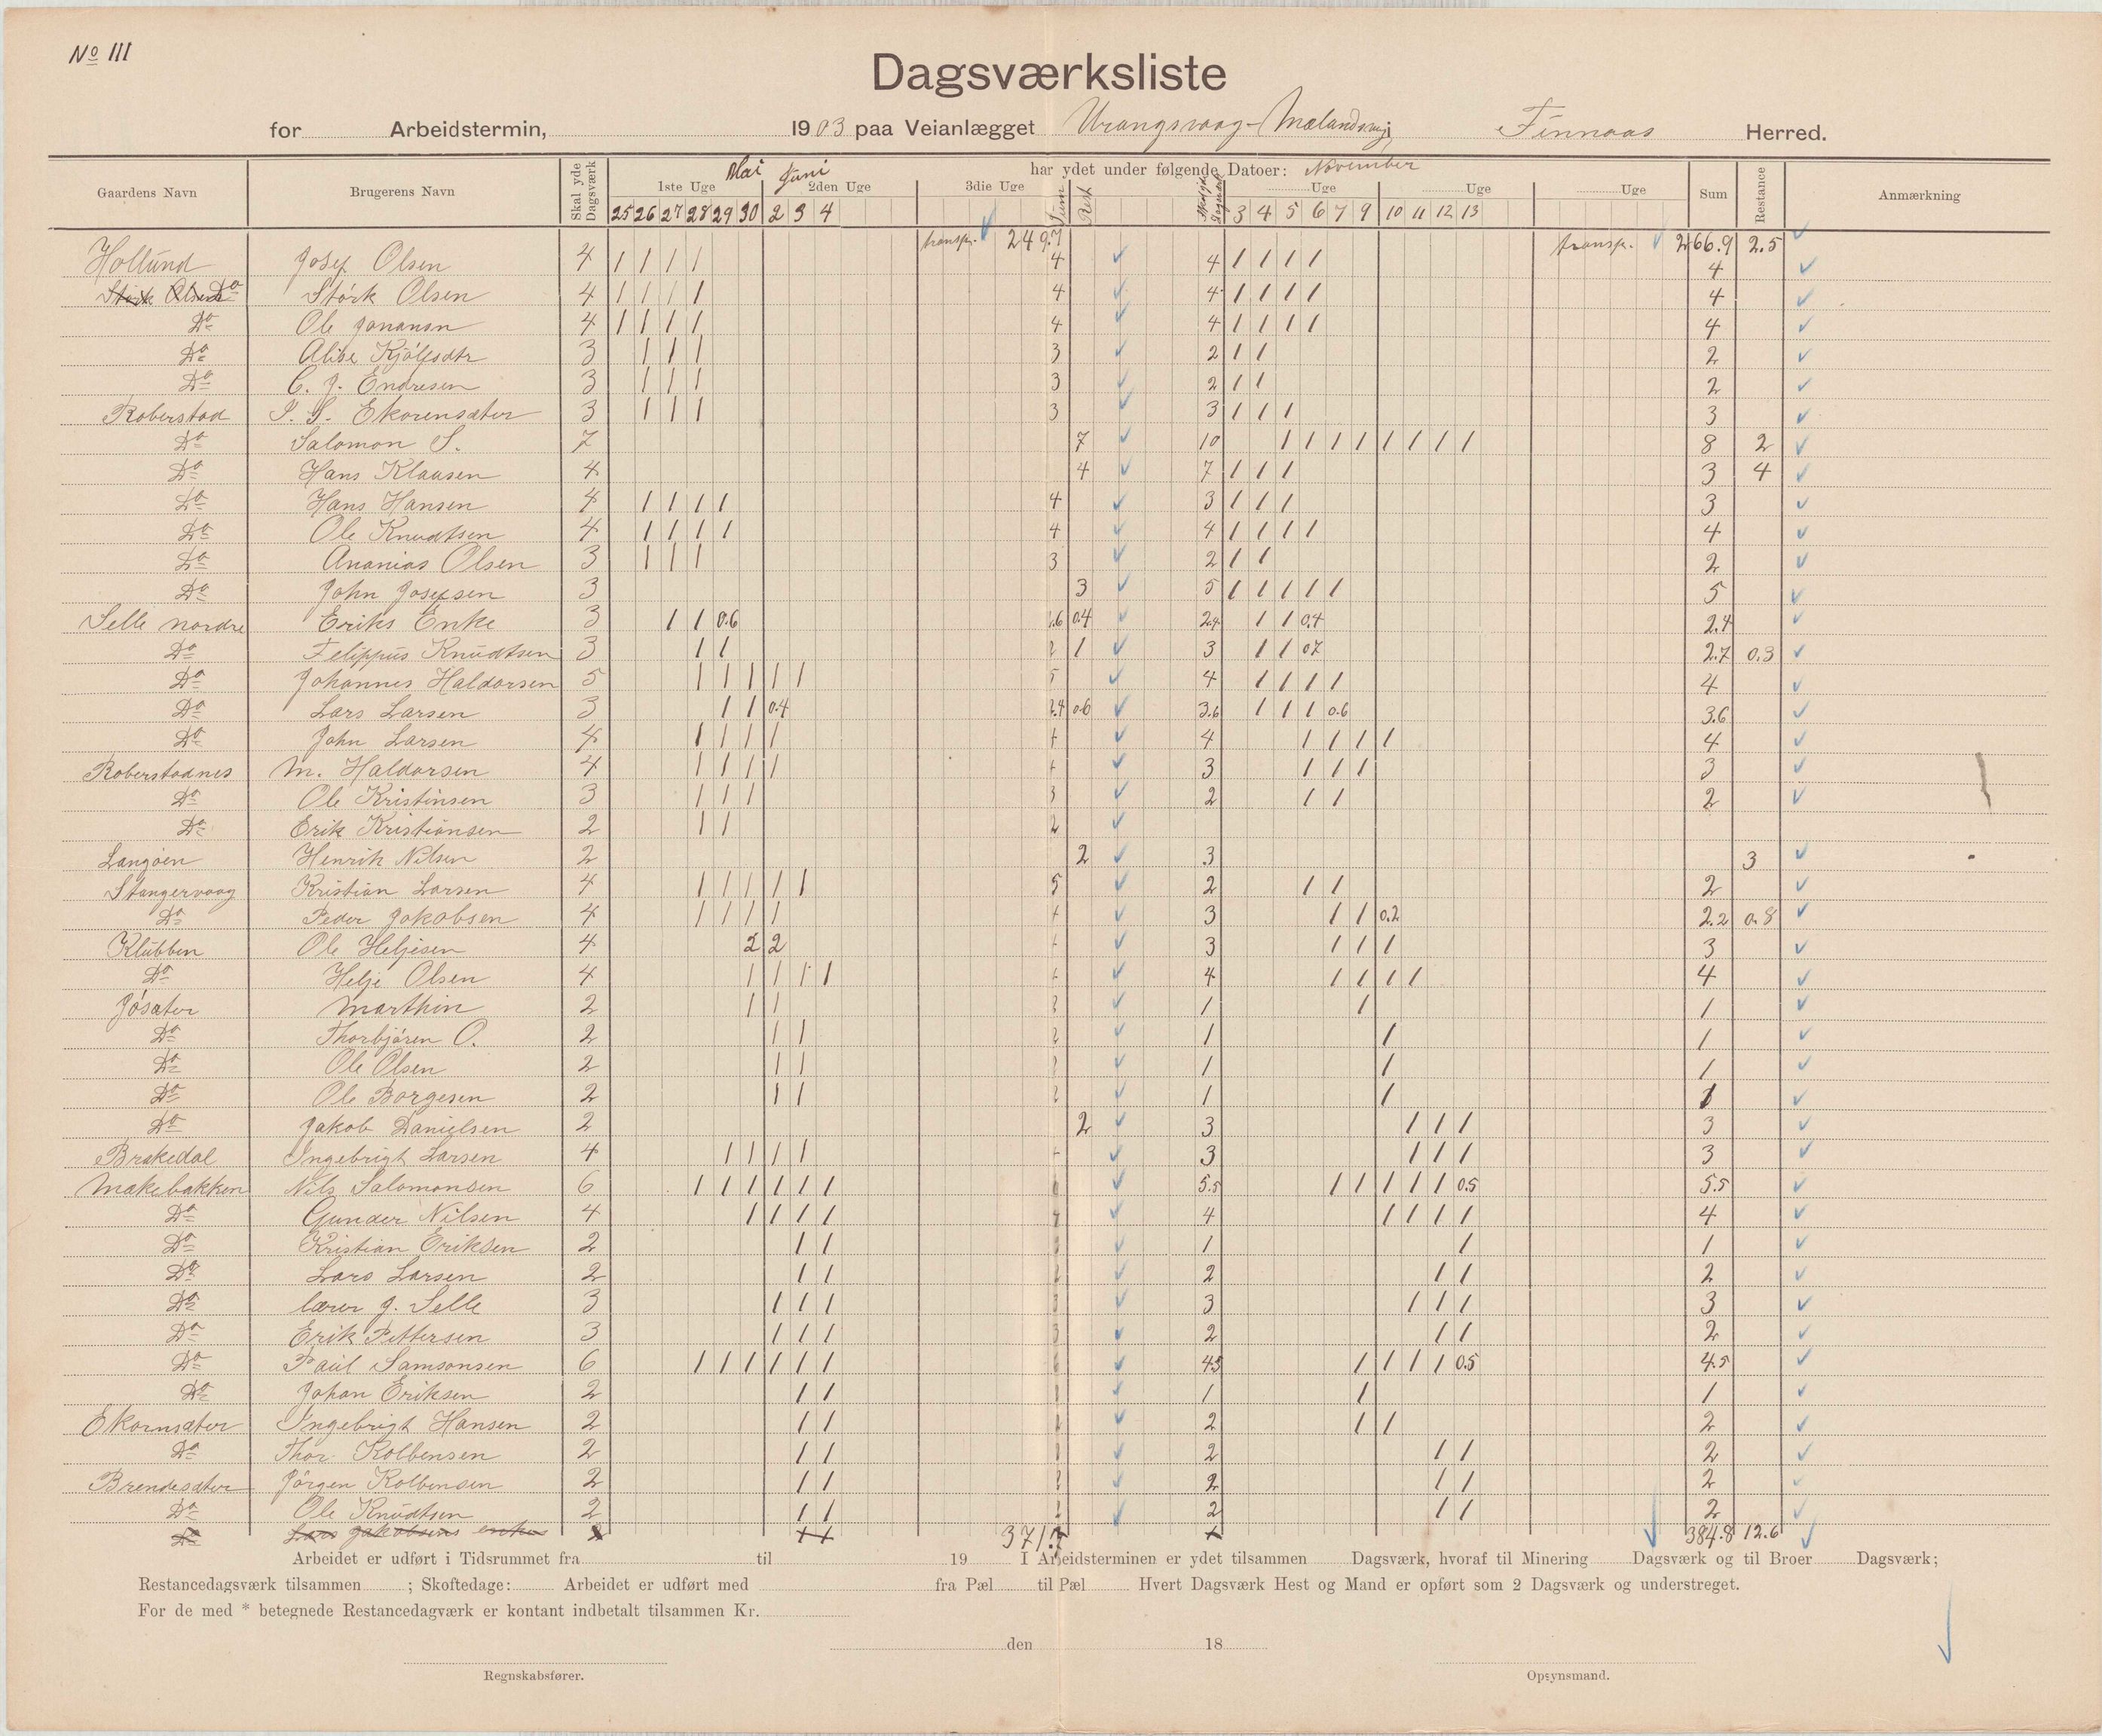 No III
Dagsværksliste
for Arbeidstermin, 1903 paa Veianlægget Urangsvaag-Mælandsvejg Finnaas Herred.
Gaardens Navn Brugerens Navn Skal yde Dagsværk har ydet under følgende Datoer: Mai Juni November
1ste Uge 2den Uge 3die Uge Sum Rest Uge Uge Uge Sum Restance Anmærkning
25 26 27 28 29 30 2 3 4 3 4 5 6 7 9 10 11 12 13
transp. 249.7 transp. 266.9 2.5
Hollund Josef Olsen 4 1 1 1 1 4 4 1 1 1 1 4
Störk Olsen Do Störk Olsen 4 1 1 1 1 4 4 1 1 1 1 4
Do Ole Jonanon 4 1 1 1 1 4 4 1 1 1 1 4
Do Alise Kjölfsdtr 3 1 1 1 3 2 1 1 2
Do C. J. Endresen 3 1 1 1 3 2 1 1 2
Roberstad S. S. Ekorensæter 3 1 1 1 3 3 1 1 1 3
Do Salomon S. 7 7 10 1 1 1 1 1 1 1 1 8 2
Do Hans Klausen 4 4 7 1 1 1 3 4
Do Hans Hansen 4 1 1 1 1 4 3 1 1 1 3
Do Ole Knudtsen 4 1 1 1 1 4 4 1 1 1 1 4
Do Ananias Olsen 3 1 1 1 3 2 1 1 2
Do John Josefsen 3 3 5 1 1 1 1 1 5
Selle nordre Eriks Enke 3 1 1 0.6 2.6 0.4 2.4 1 1 0.4 2.4
Do Felippus Knudtsen 3 1 1 2 1 3 1 1 0.7 2.7 0.3
Do Johannes Haldorsen 5 1 1 1 1 1 5 4 1 1 1 1 4
Do Lars Larsen 3 1 1 0.4 2.4 0.6 3.6 1 1 1 0.6 3.6
Do John Larsen 4 1 1 1 1 4 4 1 1 1 1 4
Roberstadnes M. Haldorsen 4 1 1 1 1 4 3 1 1 1 3
Do Ole Kristinsen 3 1 1 1 3 2 1 1 2
Do Erik Kristiansen 2 1 1 2
Langöen Henrik Nilsen 2 2 3 3
Stangervaag Kristian Larsen 4 1 1 1 1 1 5 2 1 1 2
Do Peder Jakobsen 4 1 1 1 1 4 3 1 1 0.2 2.2 0.8
Klubben Ole Heljesen 4 2 2 4 3 1 1 1 3
Do Helje Olsen 4 1 1 1 1 4 4 1 1 1 1 4
Jösæter Marthin 2 1 1 2 1 1 1
Do Thorbjören O. 2 1 1 2 1 1 1
Do Ole Olsen 2 1 1 2 1 1 1
Do Ole Borgesen 2 1 1 2 1 1 1
Do Jakob Danielsen 2 2 3 1 1 1 3
Brakedal Ingebrigt Larsen 4 1 1 1 1 4 3 1 1 1 3
Makebakken Nils Salomonsen 6 1 1 1 1 1 1 6 5.5 1 1 1 1 1 0.5 5.5
Do Gunder Nilsen 4 1 1 1 1 4 4 1 1 1 1 4
Do Kristian Eriksen 2 1 1 2 1 1 1
Do Lars Larsen 2 1 1 2 2 1 1 2
Do lærer J. Selle 3 1 1 1 3 3 1 1 1 3
Do Erik Pettersen 3 1 1 1 3 2 1 1 2
Do Paul Samsonsen 6 1 1 1 1 1 1 6 4.5 1 1 1 1 0.5 4.5
Do Johan Eriksen 2 1 1 2 1 1 1
Ekornsæter Ingebrigt Hansen 2 1 1 2 2 1 1 2
Do Thor Kolbensen 2 1 1 2 2 1 1 2
Brendesæter Jörgen Kolbensen 2 1 1 2 2 1 1 2
Do Ole Knudtsen 2 1 1 2 2 1 1 2
Do Lars Jakobsens enke 1 1 371.7 384.8 12.6
Arbeidet er udført i Tidsrummet fra til 19 I Arbeidsterminen er ydet tilsammen Dagsværk, hvoraf til Minering Dagsværk og til Broer Dagsværk;
Restancedagsværk tilsammen ; Skoftedage: Arbeidet er udført med fra Pæl til Pæl Hvert Dagsværk Hest og Mand er opført som 2 Dagsværk og understreget.
For de med * betegnede Restancedagværk er kontant indbetalt tilsammen Kr.
den 18
Regnskabsfører. Opsynsmand.